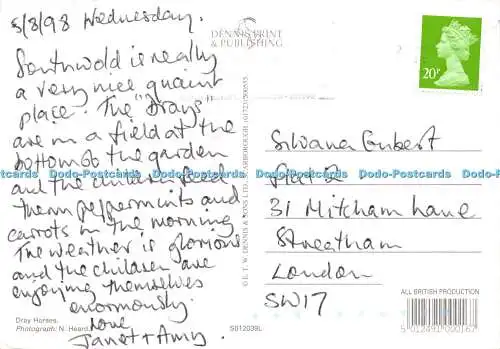 5/8/98 Wednesday.
Southwold is really
a very nice quaint
place. The "Drays"
are in a field at the
bottom of the garden
and the children feed
them peppermints and
carrots in the morning
The weather is glorious
and the children are
enjoying themselves
enormously.
Love
Janet + Amy.
Dray Horses.
Photograph: N. Heard
S012039L
DENNIS PRINT
& PUBLISHING
© E. T. W. DENNIS & SONS LTD., SCARBOROUGH (01723) 500555
20P
Silvana Gubert
Flat 2
31 Mitcham Lane
Streatham
London
SW17
ALL BRITISH PRODUCTION
5 012491 000167
Dodo-Postcards Dodo-Postcards Dodo-Postcards Dodo-Postcards Dodo-Postcards
Dodo-Postcards Dodo-Postcards Dodo-Postcards Dodo-Postcards Dodo-Postcards